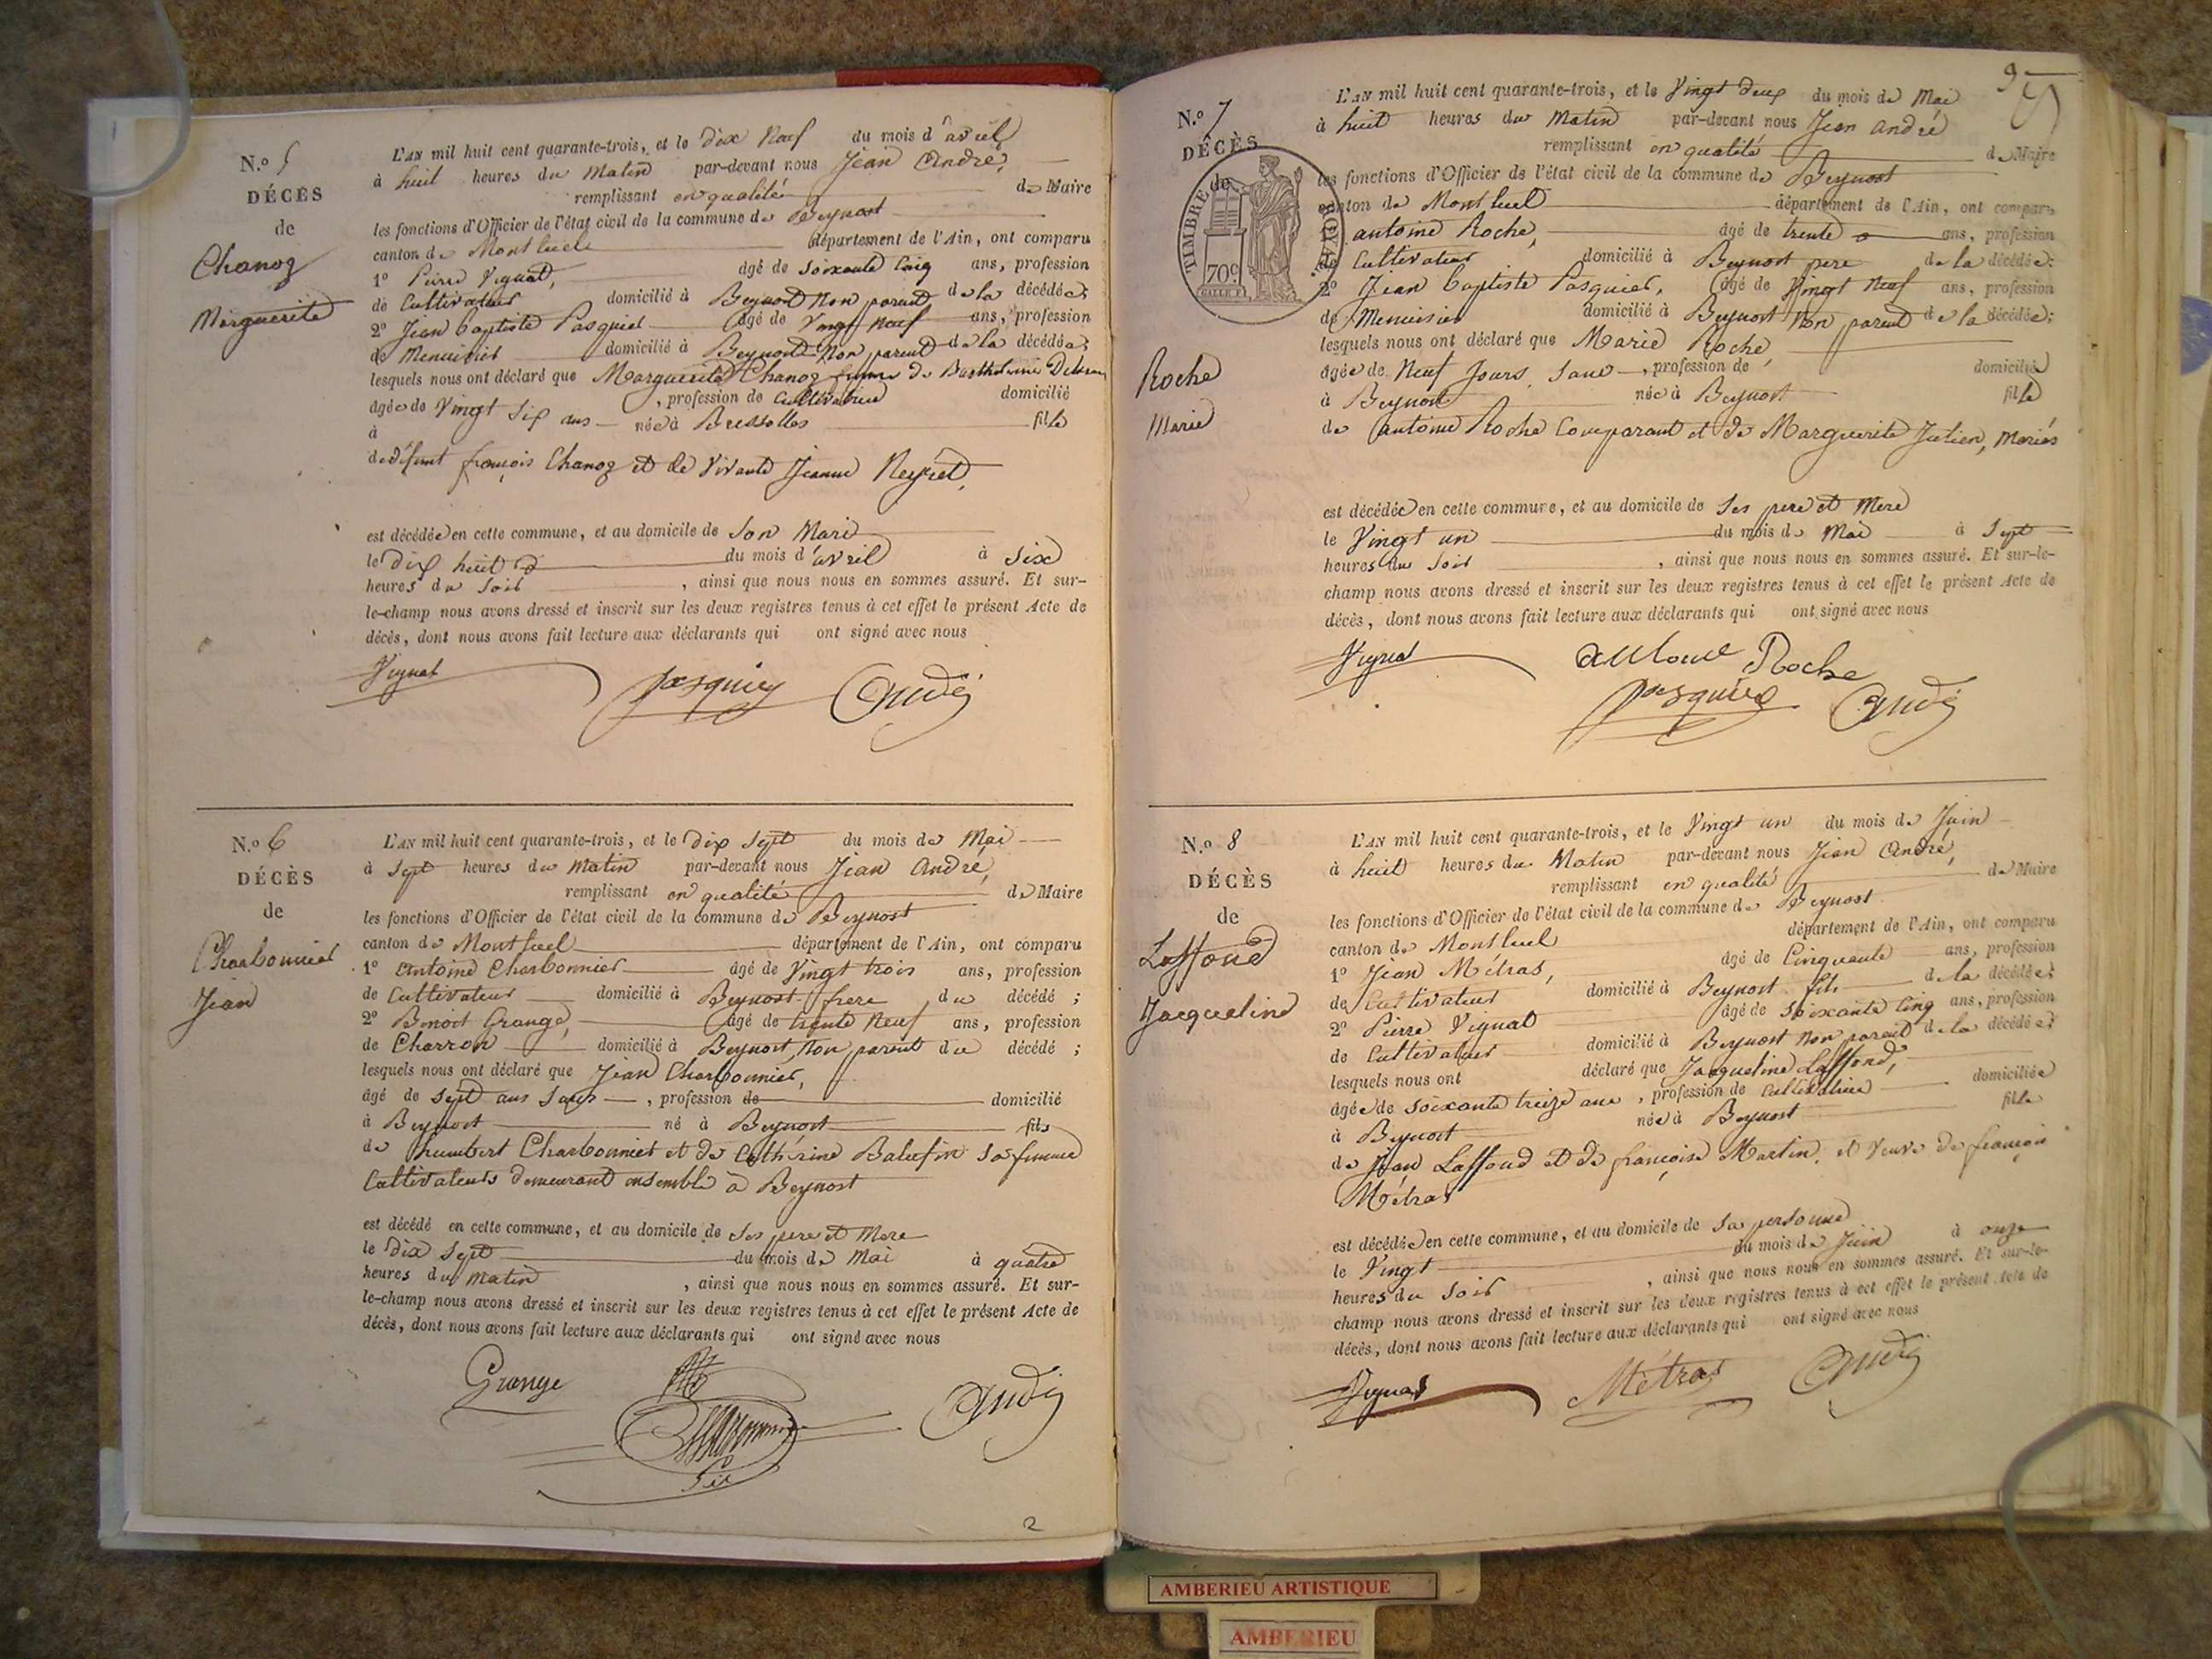 N.º 5
DÉCÈS
de
Chanoz
Marguerite
L'AN mil huit cent quarante-trois, et le dix Neuf du mois d'avril
à huit heures du Matin par-devant nous Jean André,
remplissant en qualité de Maire
les fonctions d'Officier de l'état civil de la commune de Beynost
canton de Montluel département de l'Ain, ont comparu
1º Pierre Vignat, âgé de soixante cinq ans, profession
de Cultivateur domicilié à Beynost Non parent de la décédée;
2º Jean Baptiste Pasquier âgé de Vingt Neuf ans, profession
de Menuisier domicilié à Beynost Non parent de la décédée;
lesquels nous ont déclaré que Marguerite Chanoz femme de Barthelemie
âgée de Vingt Six ans, profession de Cultivatrice domicilié
à née à Bressolles fille
de défunt françois Chanoz et de Vivante Jeanne Neyret,
est décédée en cette commune, et au domicile de Son Mari
le dix huit du mois d'avril à Six
heures du Soir, ainsi que nous nous en sommes assuré. Et sur-
le-champ nous avons dressé et inscrit sur les deux registres tenus à cet effet le présent Acte de
décès, dont nous avons fait lecture aux déclarants qui ont signé avec nous
Vignat Pasquier André
N.º 6
DÉCÈS
de
Charbonnier
Jean
L'AN mil huit cent quarante-trois, et le dix Sept du mois de Mai
à Sept heures du Matin par-devant nous Jean André,
remplissant en qualité de Maire
les fonctions d'Officier de l'état civil de la commune de Beynost
canton de Montluel département de l'Ain, ont comparu
1º Antoine Charbonnier âgé de Vingt trois ans, profession
de Cultivateur domicilié à Beynost frere du décédé;
2º Benoit Grange, âgé de trente Neuf ans, profession
de Charron domicilié à Beynost, Non parent du décédé;
lesquels nous ont déclaré que Jean Charbonnier,
âgé de Sept ans Sans, profession de domicilié
à Beynost né à Beynost fils
de humbert Charbonnier et de Catherine Balufin sa femme
Cultivateurs demeurant ensemble à Beynost
est décédé en cette commune, et au domicile de Ses pere et Mere
le dix Sept du mois de Mai à quatre
heures du Matin, ainsi que nous nous en sommes assuré. Et sur-
le-champ nous avons dressé et inscrit sur les deux registres tenus à cet effet le présent Acte de
décès, dont nous avons fait lecture aux déclarants qui ont signé avec nous
Grange Charbonnier André
2
95
N.º 7
DÉCÈS
de
TIMBRE ROYAL
70 c
Roche
Marie
L'AN mil huit cent quarante-trois, et le Vingt deux du mois de Mai
à huit heures du Matin par-devant nous Jean André
remplissant en qualité de Maire
les fonctions d'Officier de l'état civil de la commune de Beynost
canton de Montluel département de l'Ain, ont comparu
antoine Roche, âgé de trente ans, profession
de Cultivateur domicilié à Beynost pere de la décédée;
2º Jean Baptiste Pasquier, âgé de Vingt Neuf ans, profession
de Menuisier domicilié à Beynost Non parent de la décédée;
lesquels nous ont déclaré que Marie Roche,
âgée de Neuf Jours, Sans, profession de domicilié
à Beynost née à Beynost fille
de antoine Roche Comparant et de Marguerite Julien, Mariés
est décédée en cette commune, et au domicile de Ses pere et Mere
le Vingt un du mois de Mai à Sept
heures du Soir, ainsi que nous nous en sommes assuré. Et sur-le-
champ nous avons dressé et inscrit sur les deux registres tenus à cet effet le présent Acte de
décès, dont nous avons fait lecture aux déclarants qui ont signé avec nous
Vignat antoine Roche
Pasquier André
N.º 8
DÉCÈS
de
Laffond
Jacqueline
L'AN mil huit cent quarante-trois, et le Vingt un du mois de Juin
à huit heures du Matin par-devant nous Jean André,
remplissant en qualité de Maire
les fonctions d'Officier de l'état civil de la commune de Beynost
canton de Montluel département de l'Ain, ont comparu
1º Jean Métras, âgé de Cinquante ans, profession
de Cultivateur domicilié à Beynost fils de la décédée;
2º Pierre Vignat âgé de soixante cinq ans, profession
de Cultivateur domicilié à Beynost Non parent de la décédée;
lesquels nous ont déclaré que Jacqueline Laffond,
âgée de soixante treize ans, profession de Cultivatrice domiciliée
à Beynost née à Beynost fille
de Jean Laffond et de françoise Martin, et Veuve de françois
Métras
est décédée en cette commune, et au domicile de Sa personne
le Vingt du mois de Juin à onze
heures du Soir, ainsi que nous nous en sommes assuré. Et sur-le-
champ nous avons dressé et inscrit sur les deux registres tenus à cet effet le présent Acte de
décès, dont nous avons fait lecture aux déclarants qui ont signé avec nous
Vignat Métras André
AMBERIEU ARTISTIQUE
AMBERIEU